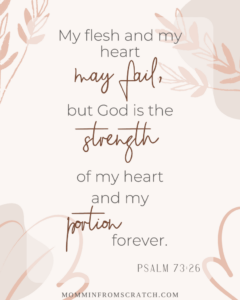 My flesh and my
heart
may fail,
but God is the
strength
of my heart
and my
portion
forever.
PSALM 73:26
MOMMINFROMSCRATCH.COM